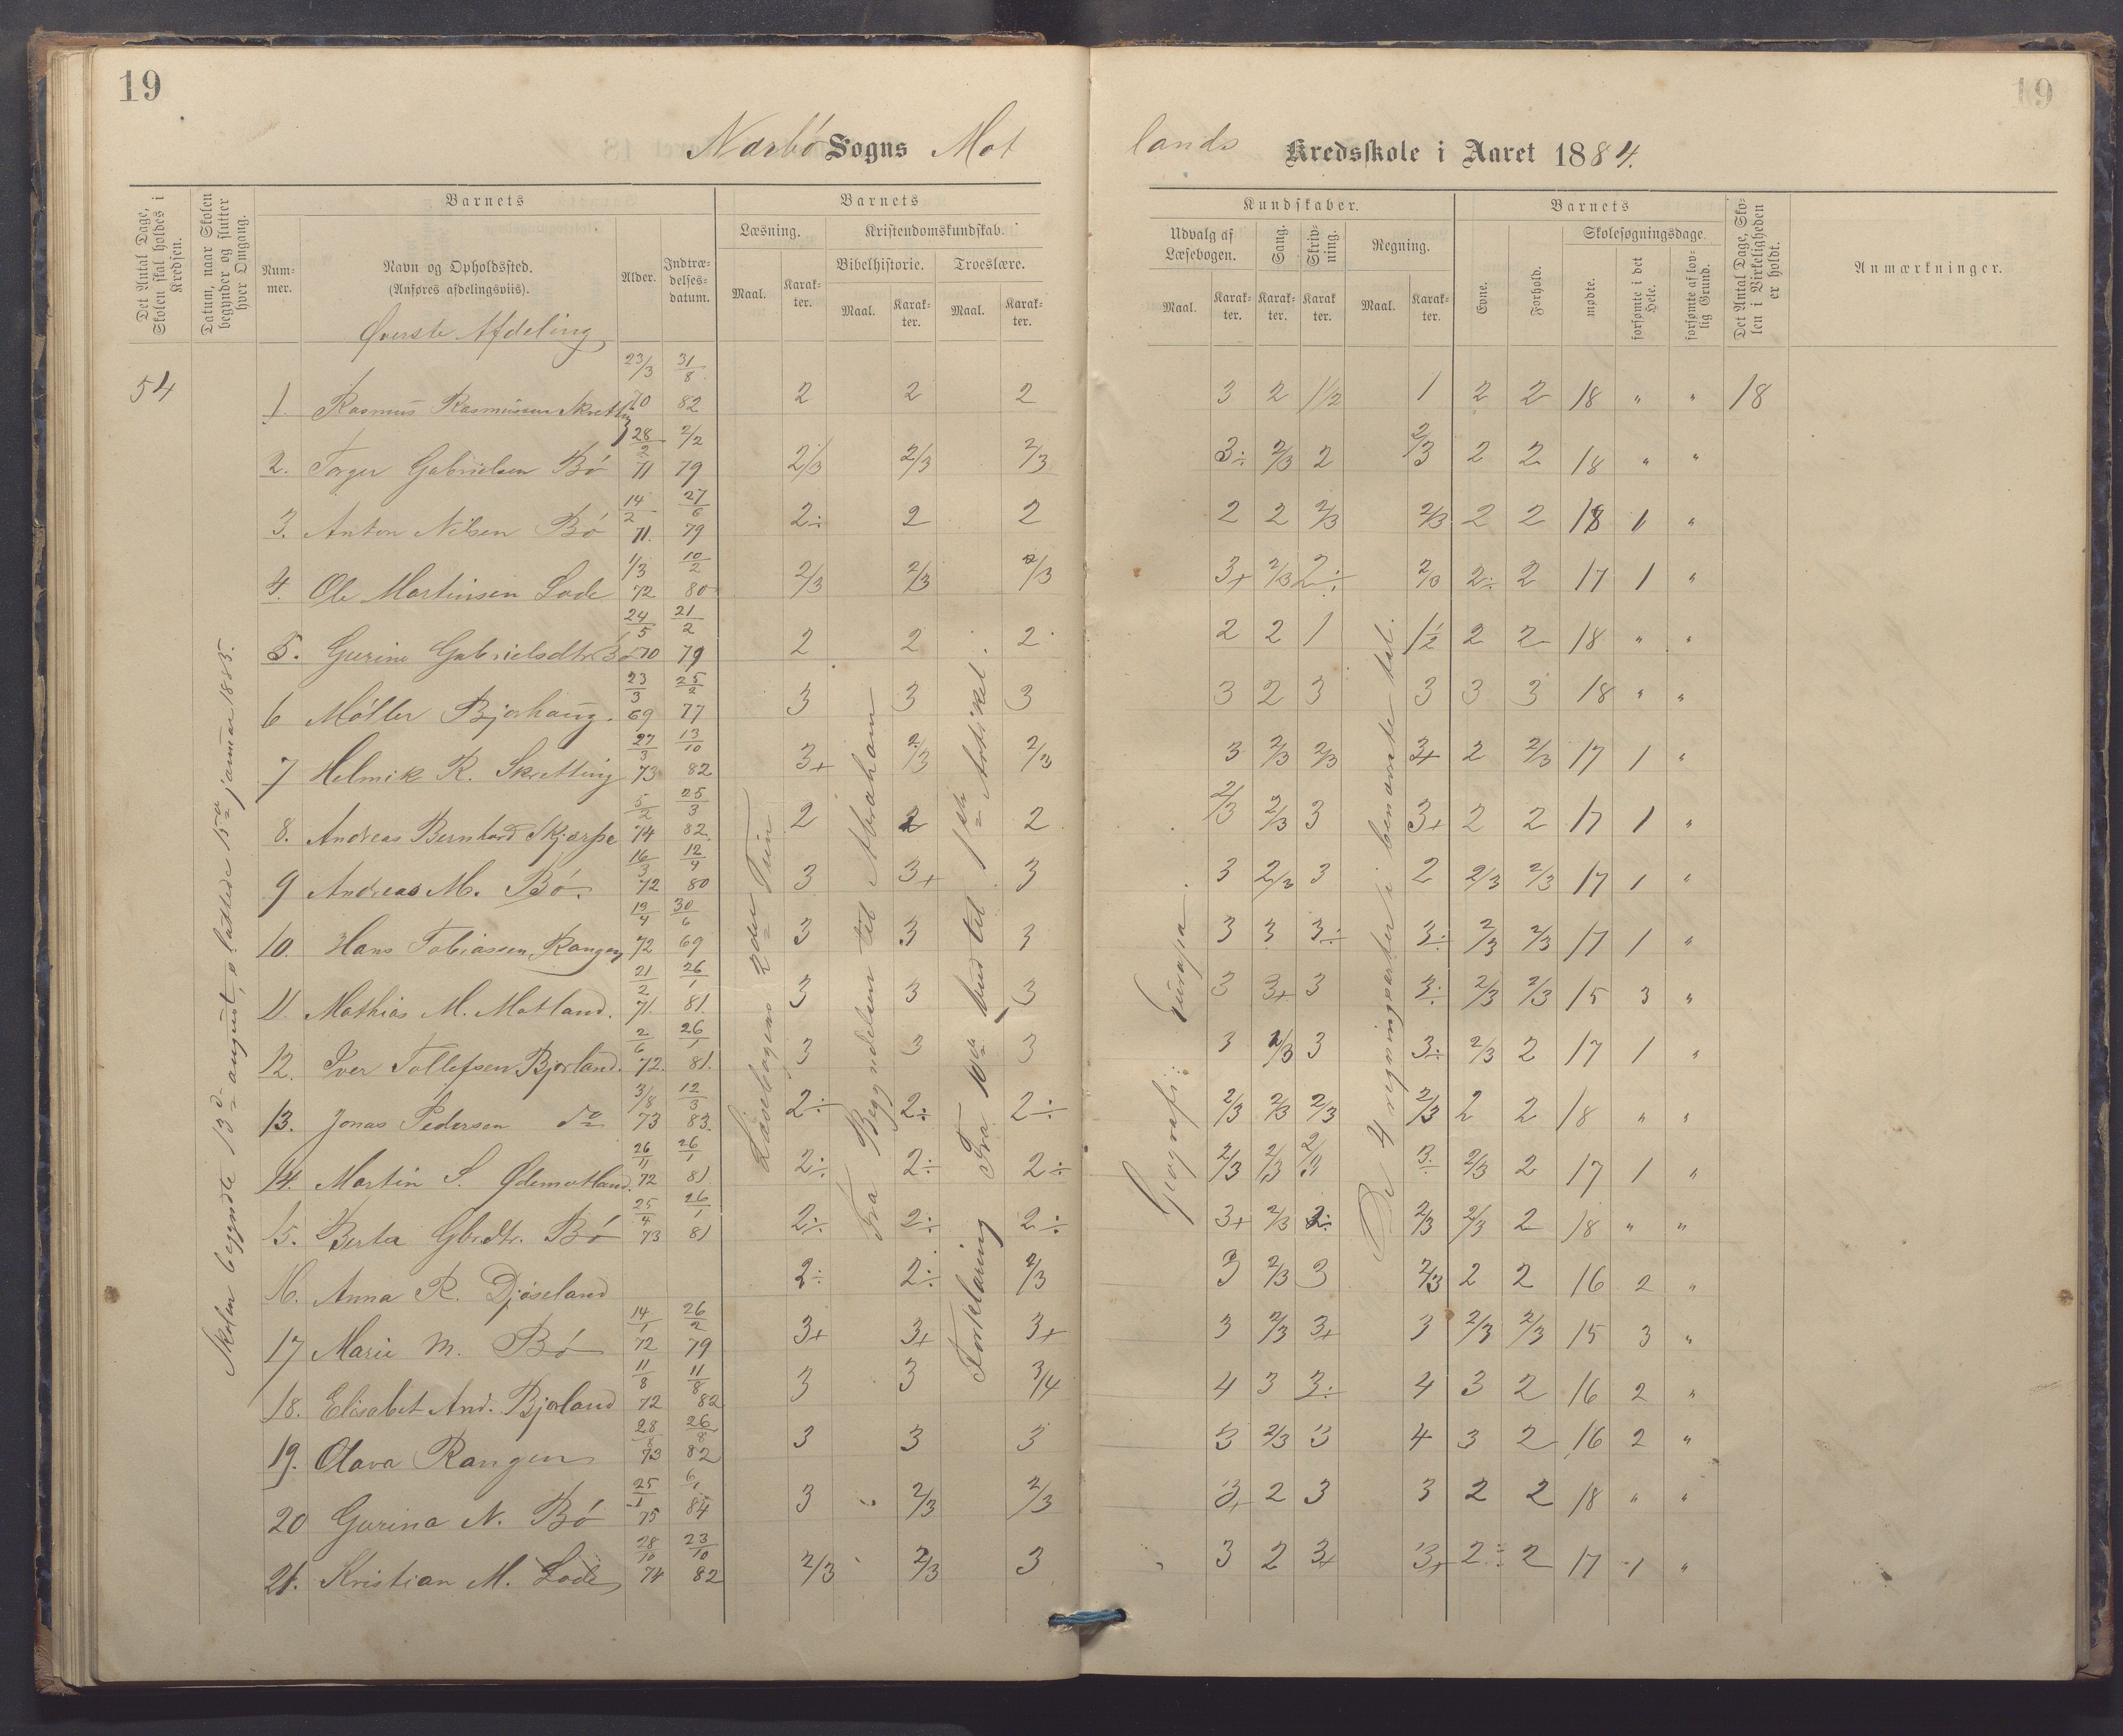 19
19
Nærbø Sogns Mot lands Kredsskole i Aaret 1884.
Det Antal Dage, Skolen skal holdes i Kredsen.
Datum, naar Skolen begynder og slutter hver Omgang.
Barnets
Num-mer.
Navn og Opholdssted. (Anføres afdelingsviis).
Alder.
Indtræ-delses-datum.
Barnets
Læsning.
Maal. Karak-ter.
Kristendomskundskab.
Bibelhistorie. Troeslære.
Maal. Karak-ter. Maal. Karak-ter.
Kundskaber.
Udvalg af Læsebogen.
Maal. Karak-ter.
Sang. Karak-ter.
Skriv-ning. Karak-ter.
Regning.
Maal. Karak-ter.
Barnets
Evne. Forhold.
Skolesøgningsdage.
mødte. forsømte i det Hele. forsømte af lov-lig Grund.
Det Antal Dage, Sko-len i Virkeligheden er holdt.
Anmærkninger.
Øverste Afdeling
54
1. Rasmus Rasmussen Skretting 23/3 70 31/8 82 2 2 2 3 2 1/2 1 2 2 18 " " 18
2. Torger Gabrielsen Bø 28/2 71 2/2 79 2/3 2/3 2/3 3÷ 2/3 2 2/3 2 2 18 " "
3. Anton Nilsen Bø 14/2 71. 27/6 79 2÷ 2 2 2 2 2/3 2/3 2 2 18 1 "
4. Ole Martinsen Lode 1/3 72 10/2 80 2/3 2/3 2/3 3+ 2/3 2÷ 2/3 2÷ 2 17 1 "
5. Gurine Gabrielsdtr. Bø 24/5 70 21/2 79 2 2 2 2 2 1 1 1/2 2 2 18 " "
6 Møller Bjorhaug. 23/3 69 25/2 77 3 3 3 3 2 3 3 3 3 18 " "
7 Helmik R. Skretting 27/3 73 13/10 82 3+ 2/3 2/3 3 2/3 2/3 3+ 2 2/3 17 1 "
8. Andreas Bernhard Skjærpe 5/2 74 25/3 82. 2 2 2 2/3 2/3 3 3+ 2 2 17 1 "
9 Andreas M. Bø. 16/3 72 12/4 80 3 3+ 3 3 2/3 3 2 2/3 2/3 17 1 "
10. Hans Tobiassen Rangen 19/4 72 30/6 69 3 3 3 3 3 3÷ 3÷ 2/3 2/3 17 1 "
11. Mathias M. Motland. 21/2 71. 26/1 81. 3 3 3 3 3+ 3 3÷ 2/3 2/3 15 3 "
12. Iver Tollefsen Bjorland. 2/6 72. 26/1 81. 3 3 3 3 2/3 3 3÷ 2/3 2 17 1 "
13. Jonas Pedersen do 3/8 73 12/3 83. 2÷ 2÷ 2÷ 2/3 2/3 2/3 2/3 2 2 18 " "
14. Martin S. Ødemotland. 26/11 72 26/1 81 2÷ 2÷ 2÷ 2/3 2/3 2/3 3÷ 2/3 2 17 1 "
15. Berta Gbrdtr. Bø 25/4 73 26/1 81 2÷ 2÷ 2÷ 3+ 2/3 2÷ 2/3 2/3 2 18 " "
16. Anna R. Djøseland 2÷ 2÷ 2/3 3 2/3 3 2/3 2 2 16 2 "
17 Marie M. Bø 14/1 72 26/2 79 3+ 3+ 3+ 3 2/3 3+ 3 2/3 2/3 15 3 "
18. Elisabet And. Bjorland 11/8 72 11/8 82 3 3 3/4 4 3 3÷ 4 3 2 16 2 "
19. Olava Rangen 28/8 73 26/8 82 3 3 3 3 2/3 3 4 3 2 16 2 "
20 Gurina N. Bø 25/1 75 6/1 84 3 2/3 2/3 3+ 2 3 3 2 2 18 " "
21. Kristian M. Lode 28/10 74 23/10 82 2/3 2/3 3 3 2 3+ 3+ 2÷ 2 17 1 "
Skolen begyndte 13d august, sluttede 15de januar 1885.
Læsebogens 2den Trin
Fra Begyndelsen til Abraham
Forklaring Fra 10de bud til 1ste Artikel.
Geografi: Europa.
De 4 regningsarter i benævnte tal.